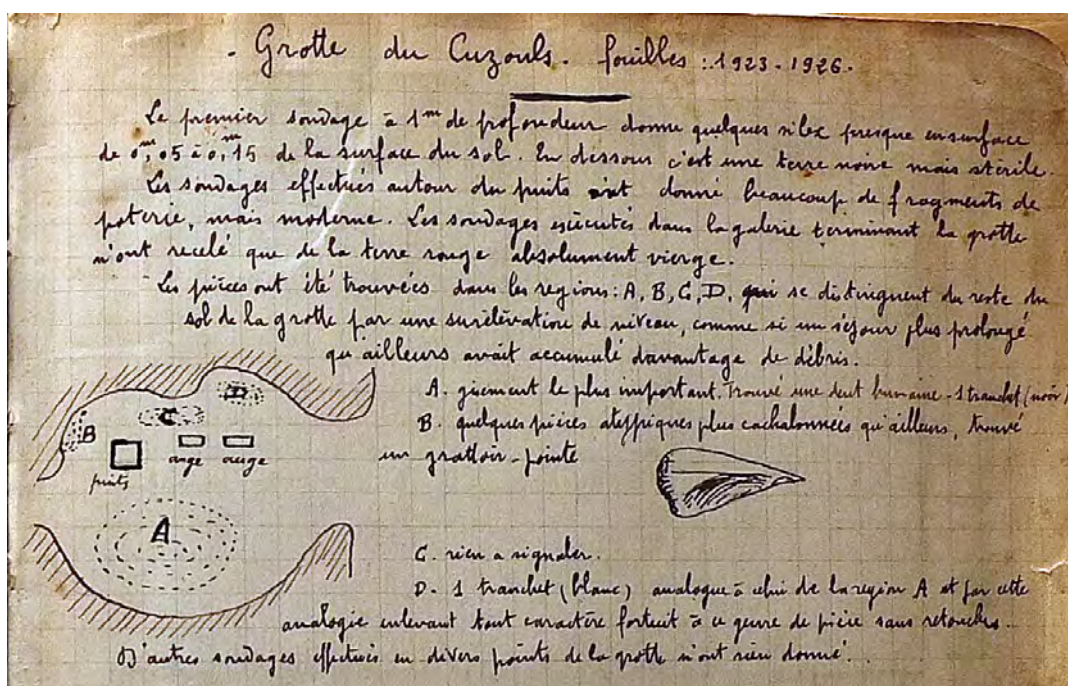 - Grotte du Cuzouls. fouilles : 1923-1926.
Le premier sondage à 1m de profondeur donne quelques silex presque en surface
de 0m,05 à 0m,15 de la surface du sol. En dessous c'est une terre noire mais stérile.
Les sondages effectués autour du puits ont donné beaucoup de fragments de
poterie, mais moderne. Les sondages exécutés dans la galerie terminant la grotte
n'ont recelé que de la terre rouge absolument vierge.
Les pièces ont été trouvées dans les regions : A, B, C, D, qui se distinguent du reste du
sol de la grotte par une surélévation de niveau, comme si un séjour plus prolongé
qu'ailleurs avait accumulé davantage de débris.
A. gisement le plus important. Trouvé une dent humaine - 1 tranchet (noir)
B. quelques pièces atyppiques plus cachalonnées qu'ailleurs, trouvé
un grattoir-pointe
D
C
B
auge auge
puits
A
C. rien a signaler.
D. 1 tranchet (blanc) analogue à celui de la region A et par cette
analogie enlevant tout caractère fortuit à ce genre de pièce sans retouches.
D'autres sondages effectués en divers points de la grotte n'ont rien donné.